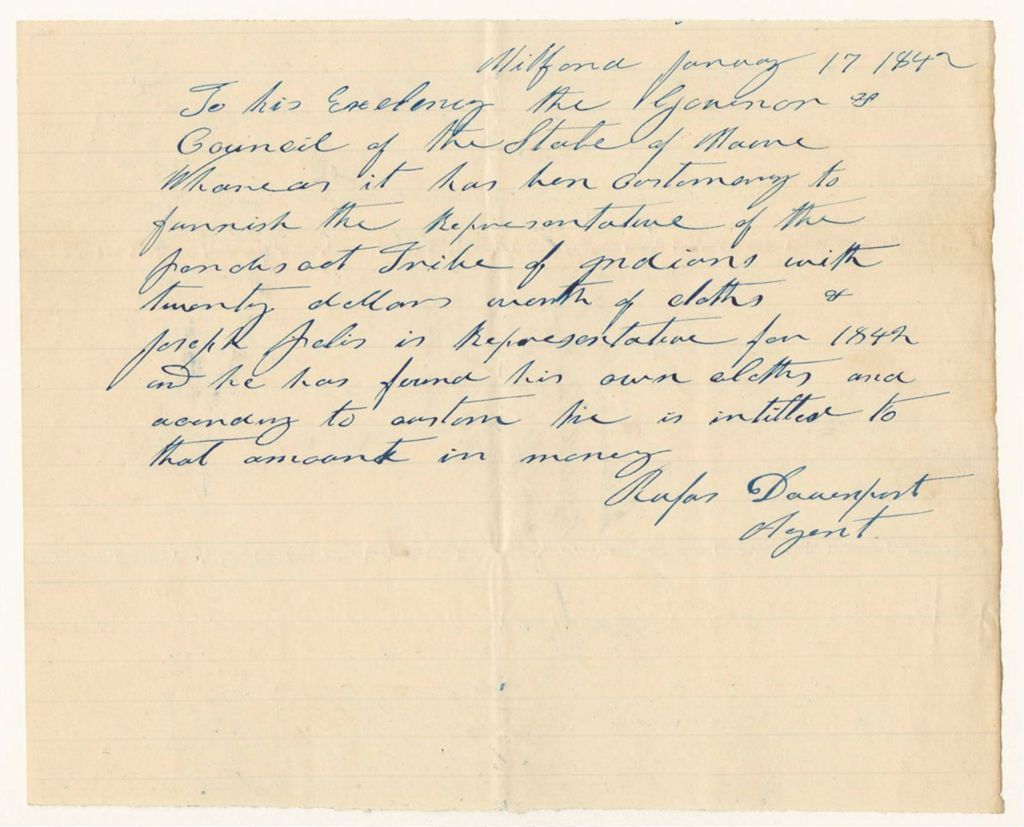 Milford January 17 1842
To his Exelency the Governor &
Council of the State of Maine
Whareas it has ben Costomary to
furnish the Representative of the
Tribe of Indians with
twenty dollars worth of cloths &
Joseph is Representative for 1842
and he has found his own cloths and
acording to custom he is intitled to
that amount in money
Rufus Davenport
Agent.